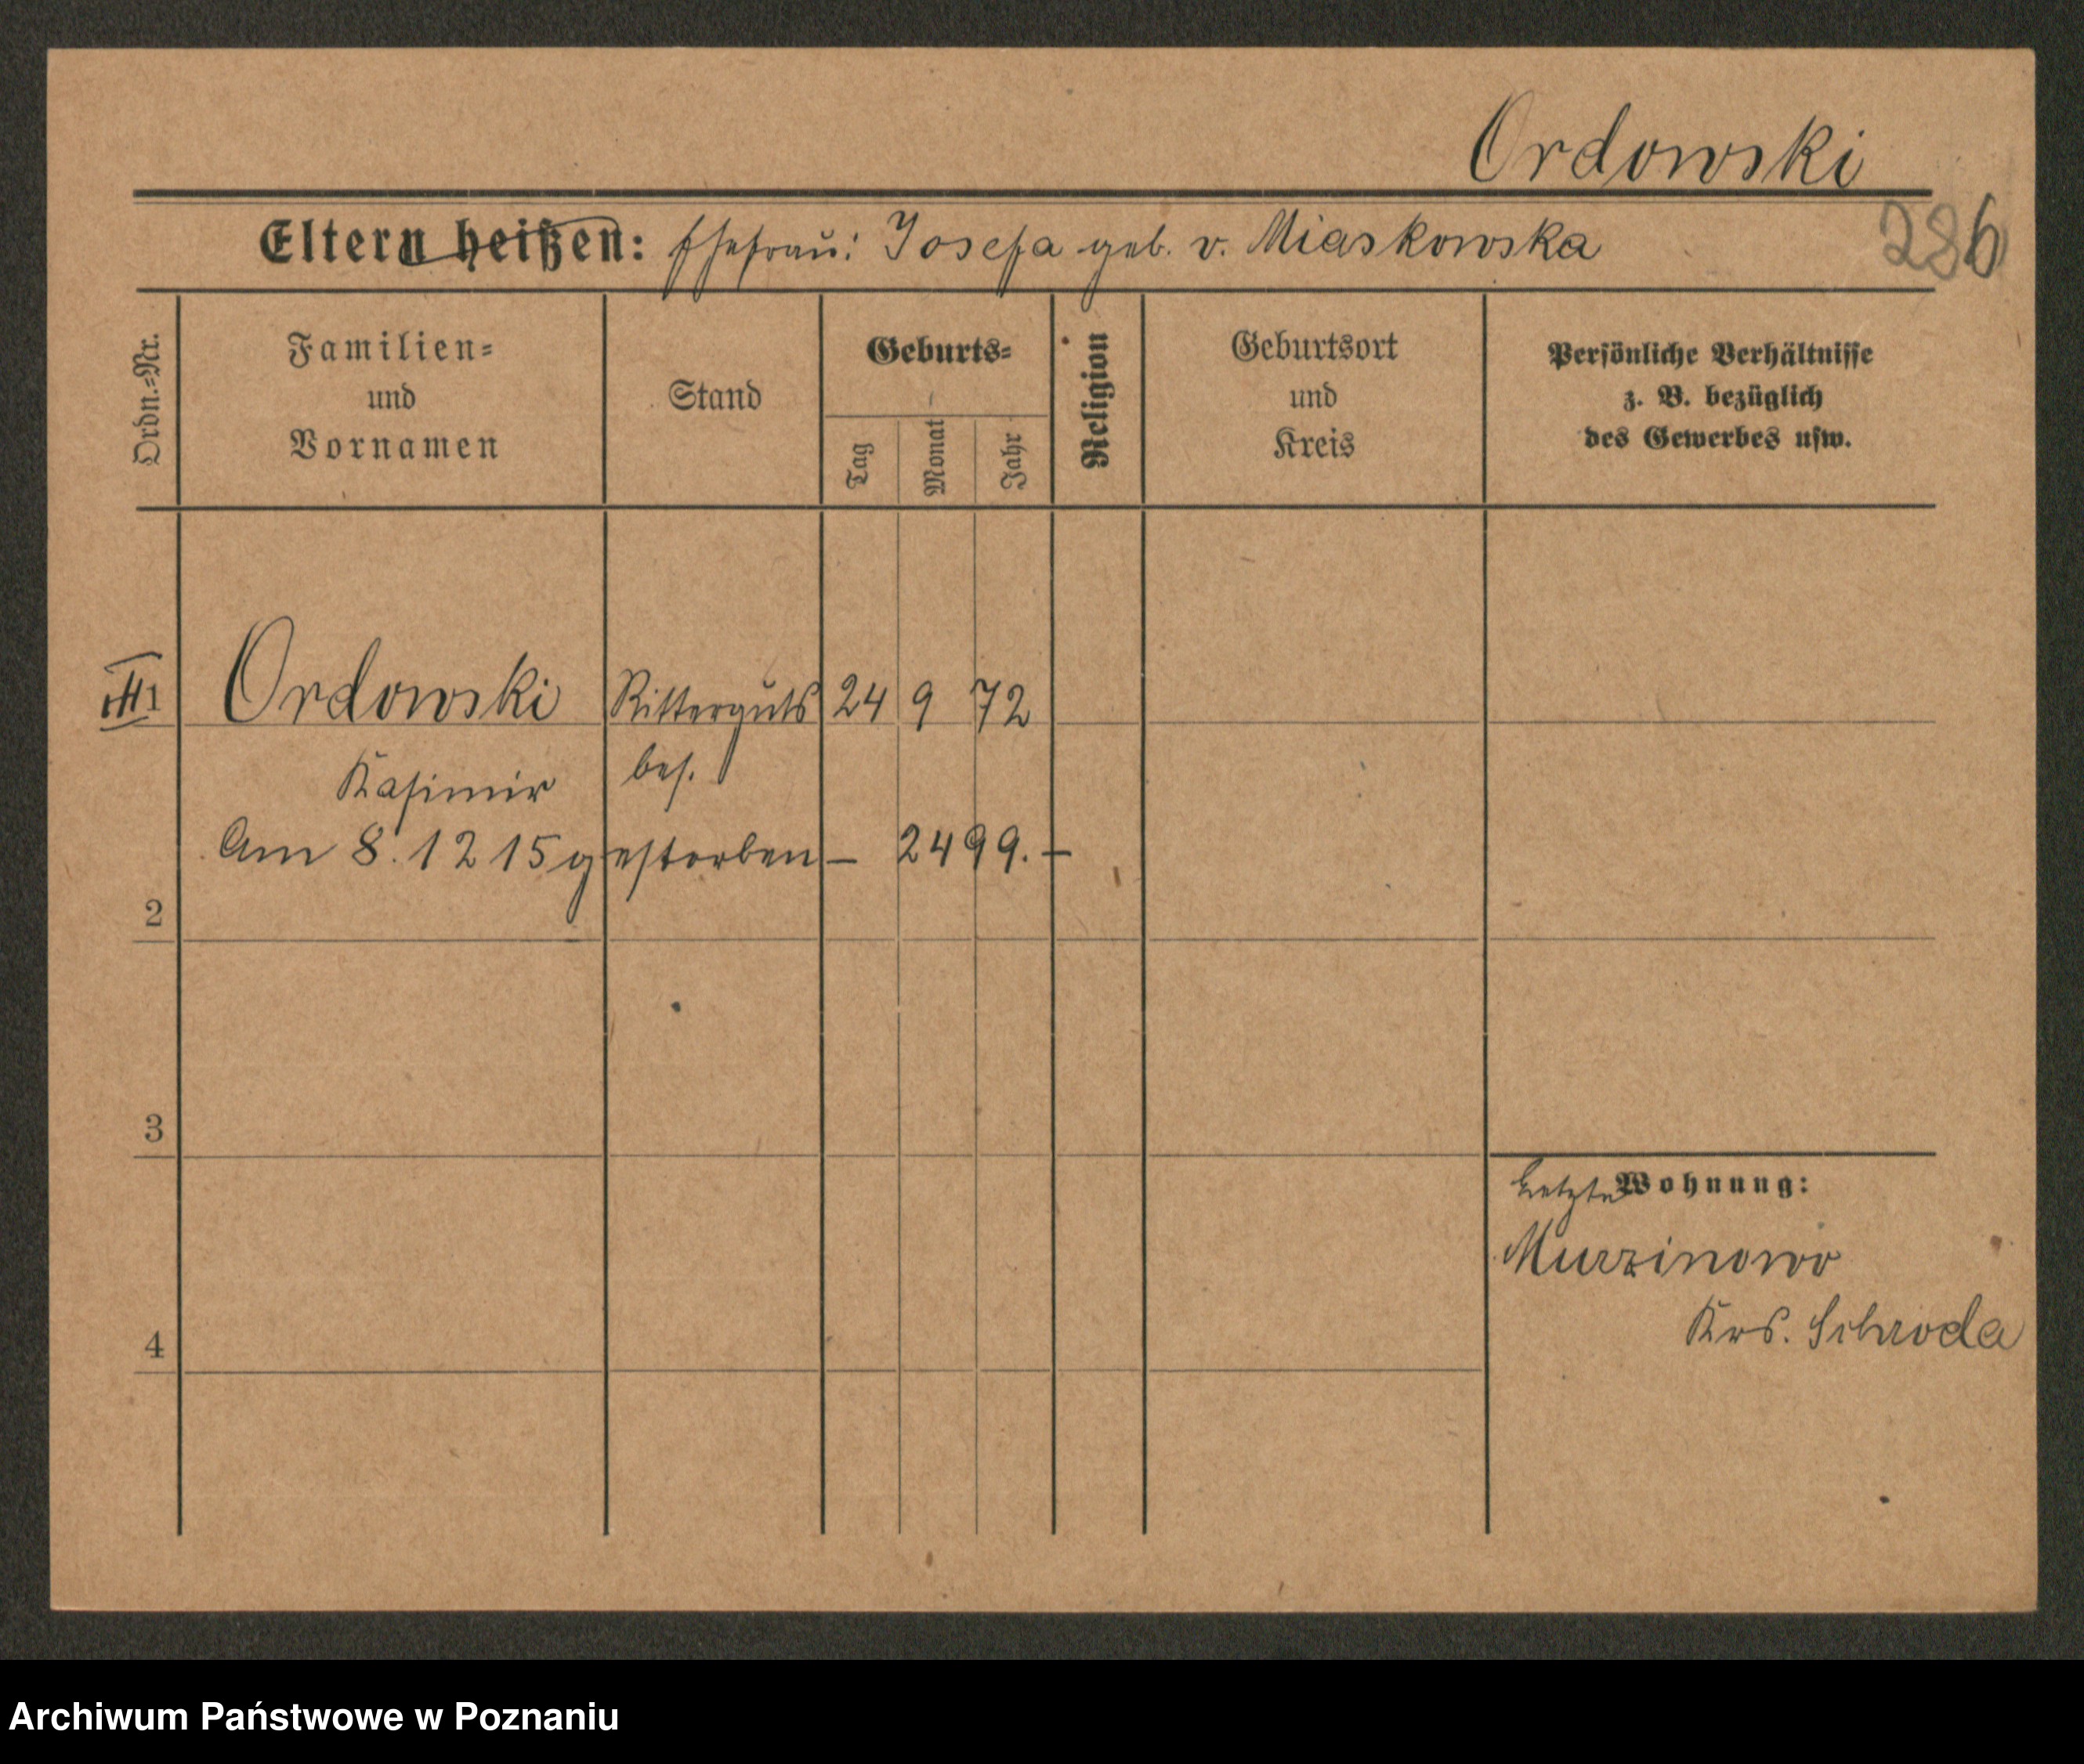 Ordowski
Eltern heißen: Ehefrau: Josefa geb. v. Miaskowska
286
Ordn.=Nr.
Familien=
und
Vornamen
Stand
Geburts=
Tag
Monat
Jahr
Religion
Geburtsort
und
Kreis
Persönliche Verhältnisse
z. B. bezüglich
des Gewerbes usw.
III 1 Ordowski Ritterguts 24 9 72
Kasimir bes.
Am 8. 12 15 gestorben – 2499. –
2
3
letzte Wohnung:
Murzinowo
Krs. Schroda
4
Archiwum Państwowe w Poznaniu